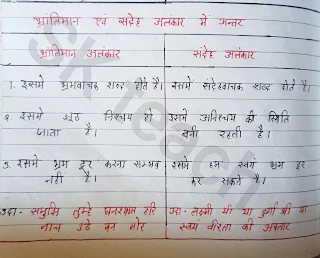 भ्रांतिमान एवं संदेह अलंकार में अन्तर
भ्रांतिमान अलंकार
संदेह अलंकार
1. इसमे भ्रमवाचक शब्द होते है।
इसमें संदेहवाचक शब्द होते है।
2. इसमे झूठ निश्चय हो
जाता है।
इसमें अनिश्चय की स्थिति
बनी रहती है।
3. इसमे भ्रम दूर करना सम्भव
नही है।
इसमे हम स्वयं भ्रम दूर
कर सकते है।
उदा- समुझि तुम्हे घनश्याम हरि
नाच उठे वन मोर
उदा- लक्ष्मी थी या दुर्गा थी या
स्वयं वीरता की अवतार
SK Teach